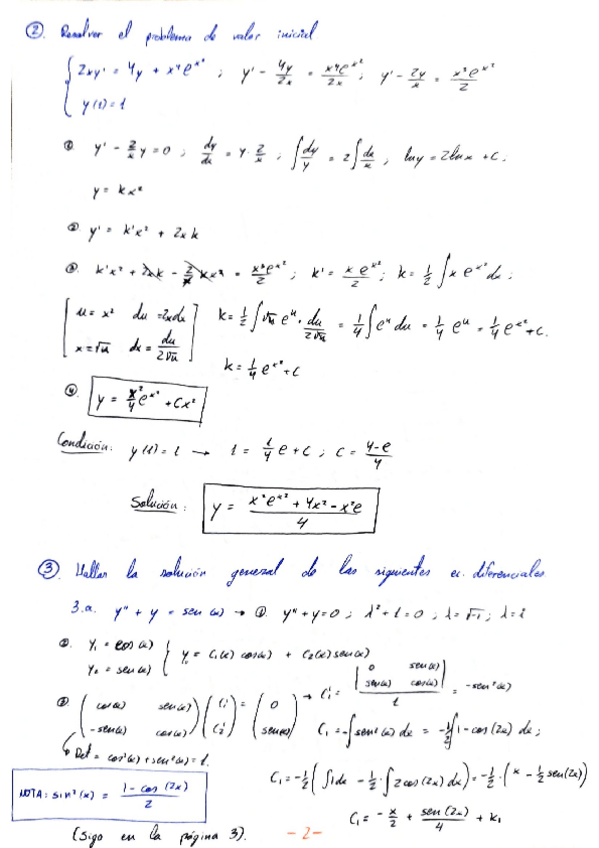 ② Resolver el problema de valor inicial
{ 2xy' = 4y + x⁴e^x² ; y' - 4y/2x = x⁴e^x²/2x ; y' - 2y/x = x³e^x²/2
y(1) = 1
① y' - 2/x y = 0 ; dy/dx = y · 2/x ; ∫dy/y = 2∫dx/x ; ln y = 2ln x + c ;
y = kx²
② y' = k'x² + 2xk
③ k'x² + 2xk - 2/x kx² = x³e^x²/2 ; k' = x e^x²/2 ; k = 1/2 ∫x e^x² dx ;
[ u = x² du = 2xdx ] k = 1/2 ∫√u e^u · du/2√u = 1/4 ∫e^u du = 1/4 e^u = 1/4 e^x² + c.
[ x = √u dx = du/2√u ]
k = 1/4 e^x² + c
④ y = x²/4 e^x² + Cx²
Condición: y(1) = 1 → 1 = 1/4 e + c ; c = 4-e/4
Solución: y = x²e^x² + 4x² - x²e / 4
③ Hallar la solución general de las siguientes ec. diferenciales
3.a. y'' + y = sen(x) → ① y'' + y = 0 ; λ² + 1 = 0 ; λ = √-1 ; λ = i
② y₁ = cos(x) { y = C₁(x) cos(x) + C₂(x) sen(x)
y₂ = sen(x)
③ ( cos(x) sen(x) ) ( C₁' ) = ( 0 ) → C₁' = | 0 sen(x) | / 1 = -sen²(x)
( -sen(x) cos(x) ) ( C₂' ) ( sen(x) ) | sen(x) cos(x) |
Det = cos²(x) + sen²(x) = 1.
C₁ = -∫sen²(x) dx = -1/2 ∫1 - cos(2x) dx ;
NOTA: sin²(x) = 1 - cos(2x) / 2
C₁ = -1/2 ( ∫1dx - 1/2 ∫2cos(2x) dx ) = -1/2 ( x - 1/2 sen(2x) )
C₁ = -x/2 + sen(2x)/4 + k₁
(Sigo en la página 3).
-2-